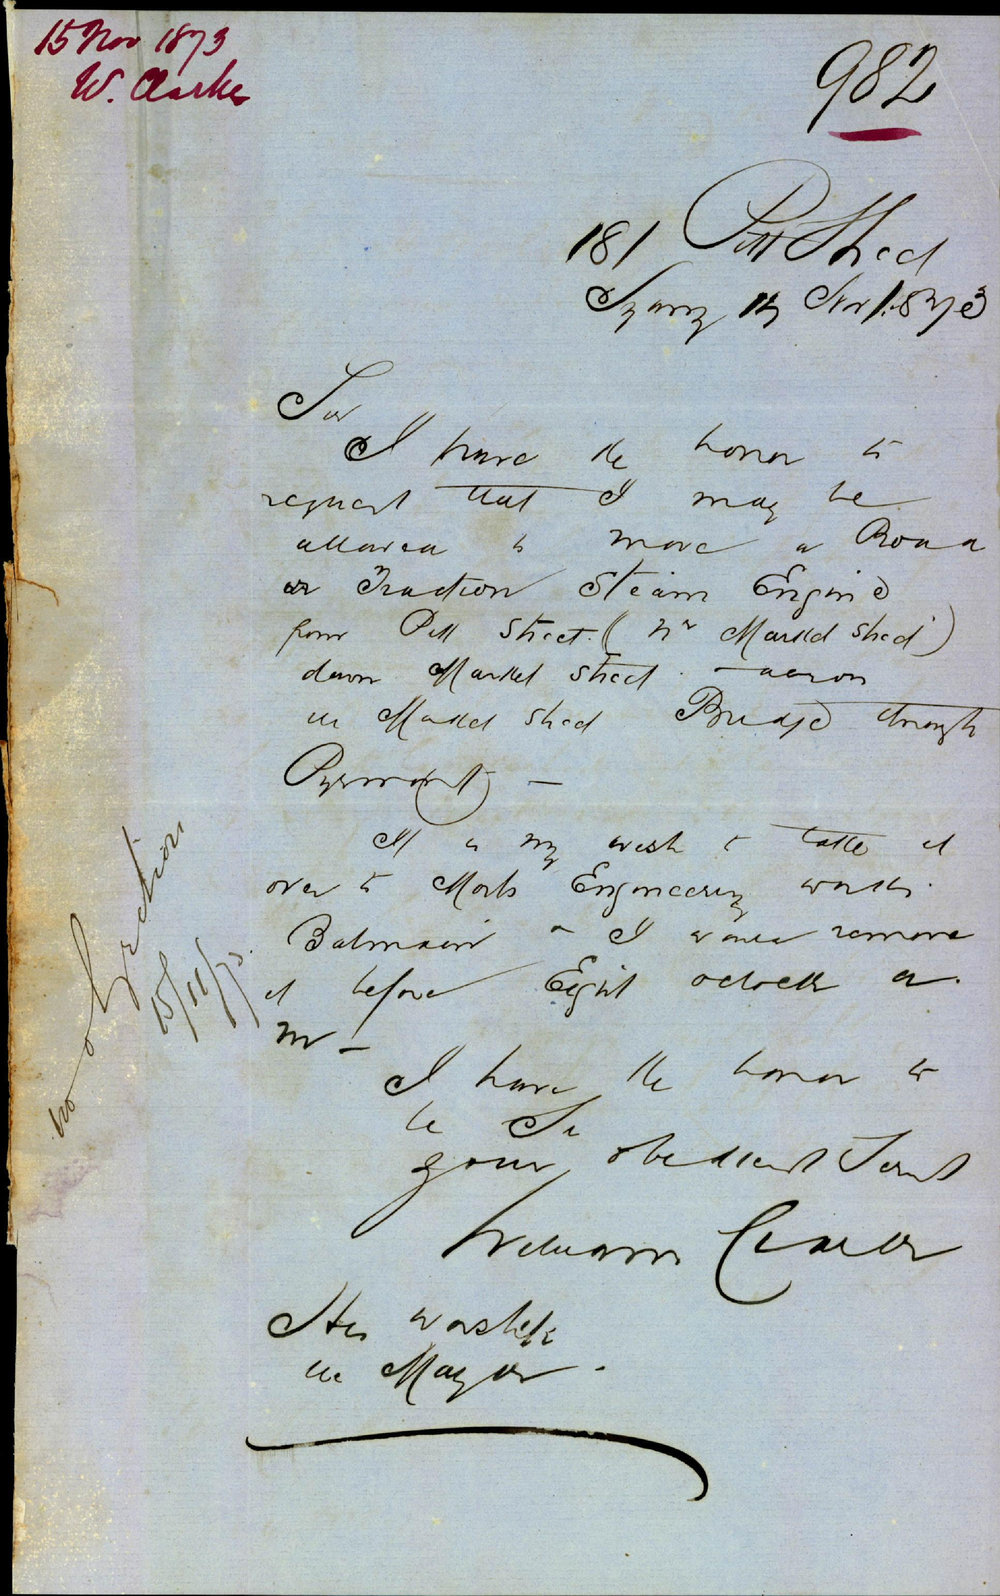 15 Nov 1873
W. Clarke
982
181 Pitt Street
Sydney Nov 1873
Sir
I have the honor to
request that I may be
allowed to move a Road
or Traction Steam Engine
from Pitt Street (nr Market Street)
down Market Street across
the Market Street Bridge through
Pyrmont —
It is my wish to take it
over to Morts Engineering works
Balmain & I would remove
it before Eight oclock a.
m —
I have the honor to
be Sir
your obedient Servt
William
His worship
the Mayor.
no objection
15/11/73